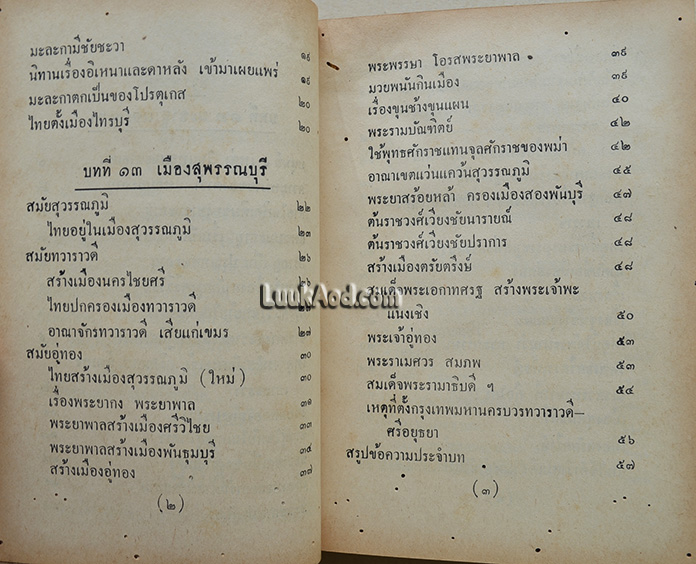 มะละกามีชัยชะวา ๑๙
นิทานเรื่องอิเหนาและดาหลัง เข้ามาเผยแพร่ ๑๙
มะละกาตกเป็นของโปรตุเกส ๒๐
ไทยตั้งเมืองไทรบุรี ๒๐
บทที่ ๑๓ เมืองสุพรรณบุรี
สมัยสุวรรณภูมิ ๒๒
ไทยอยู่ในเมืองสุวรรณภูมิ ๒๓
สมัยทวาราวดี ๒๖
สร้างเมืองนครไชยศรี ๒๖
ไทยปกครองเมืองทวาราวดี
อาณาจักรทวาราวดี เสียแก่เขมร ๒๗
สมัยอู่ทอง ๓๐
ไทยสร้างเมืองสุวรรณภูมิ (ใหม่) ๓๐
เรื่องพระยากง พระยาพาล ๓๑
พระยาพาลสร้างเมืองศรีวิไชย ๓๓
พระยาพาลสร้างเมืองพันธุมบุรี ๓๕
สร้างเมืองอู่ทอง ๓๗
(๒)
พระพรรษา โอรสพระยาพาล ๓๙
มวยพนันกินเมือง ๓๙
เรื่องขุนช้างขุนแผน ๔๐
พระรามบัณฑิตย์ ๔๒
ใช้พุทธศักราชแทนจุลศักราชของพม่า ๔๒
อาณาเขตแว่นแคว้นสุวรรณภูมิ ๔๕
พระยาสร้อยหล้า ครองเมืองสองพันบุรี ๔๗
ต้นราชวงศ์เวียงชัยนารายณ์ ๔๘
ต้นราชวงศ์เวียงชัยปราการ ๔๘
สร้างเมืองตรัยตรึงษ์ ๔๘
สมเด็จพระเอกาทศรฐ สร้างพระเจ้าพะ
แนงเชิง ๕๐
พระเจ้าอู่ทอง ๕๓
พระราเมศวร สมภพ ๕๓
สมเด็จพระรามาธิบดี ฯ ๕๔
เหตุที่ตั้งกรุงเทพมหานครบวรทวาราวดี—
ศรีอยุธยา ๕๖
สรูปข้อความประจำบท ๕๗
(๓)
LuukAod.com